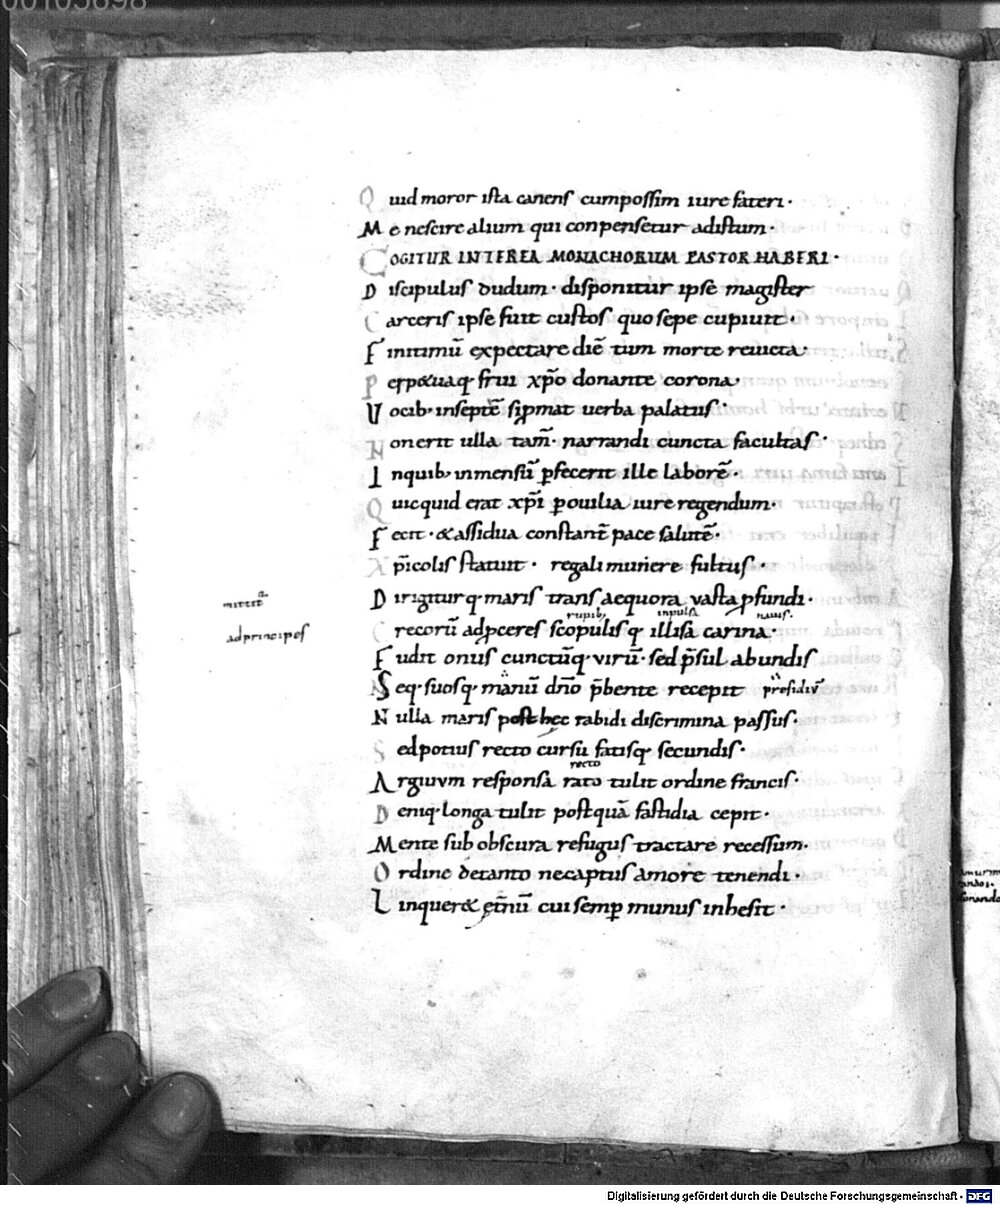 00105698
Quid moror ista canens cum possim iure fateri·
Me nescire alium qui conpensetur ad istum·
COGITUR INTEREA MONACHORUM PASTOR HABERI·
Discipulus dudum· disponitur ipse magister
Carceris ipse fuit custos quo sepe cupiuit·
Finitimū expectare diē tum morte reuicta·
Perp&uaq· frui xp̄o donante corona·
Uocib; insept̄e
uerba palatus·
Nonerit ulla tam̄· narrandi cuncta facultas·
Inquib; inmensū p̱fecerit ille laborē·
Quicquid erat xp̄i p̱ ouilia iure regendum·
Fecit· &assidua constant̄ pace salutē·
Xp̄icolis statuit· regali munere fultus·
Dirigiturq· maris trans aequora uasta p̱fundi·
mittit
rupib; inpulsa nauis·
Grecorū adp̱ceres scopulisq· illisa carina·
ad principes
Fudit onus cunctūq· uirū· sed p̄sul abundis
Seq· suosq· manū dn̄o p̄bente recepit presidiū
Nulla maris post hec rabidi discrimina passus·
Sed potius recto cursu fatisq· secundis·
recto
Argiuum responsa rato tulit ordine francis·
Deniq· longa tulit postquā fastidia cepit·
Mente sub obscura refugus tractare recessum·
Ordine detanto necaptus amore tenendi·
Linquer& ęt̄nū cui semp̱ munus inhesit·
Digitalisierung gefördert durch die Deutsche Forschungsgemeinschaft - DFG